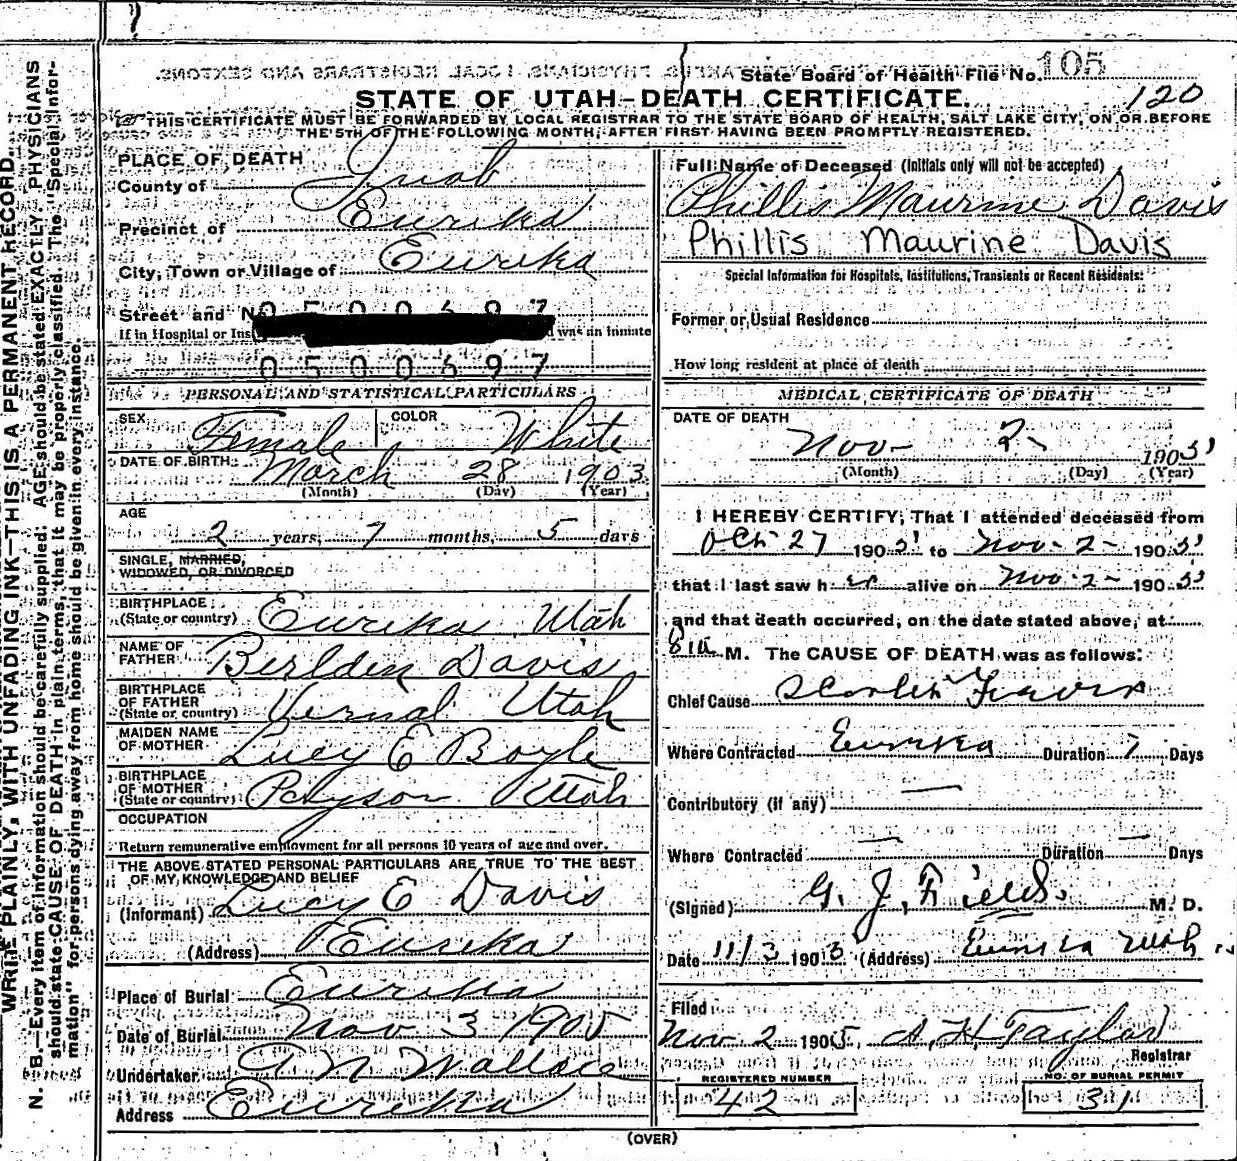 State Board of Health File No. 105
STATE OF UTAH-DEATH CERTIFICATE.
120
THIS CERTIFICATE MUST BE FORWARDED BY LOCAL REGISTRAR TO THE STATE BOARD OF HEALTH, SALT LAKE CITY, ON OR BEFORE
THE 5TH OF THE FOLLOWING MONTH, AFTER FIRST HAVING BEEN PROMPTLY REGISTERED.
WRITE PLAINLY, WITH UNFADING INK—THIS IS A PERMANENT RECORD.
N. B.—Every item of information should be carefully supplied. AGE should be stated EXACTLY. PHYSICIANS
should state CAUSE OF DEATH in plain terms, that it may be properly classified. The "Special Infor-
mation" for persons dying away from home should be given in every instance.
PLACE OF DEATH
County of Juab
Precinct of Eureka
City, Town or Village of Eureka
Street and N
0500697
If in Hospital or Ins was an inmate
0500697
PERSONAL AND STATISTICAL PARTICULARS
SEX Female COLOR White
DATE OF BIRTH March 28 1903
(Month) (Day) (Year)
AGE
2 years, 7 months, 5 days
SINGLE, MARRIED,
WIDOWED, OR DIVORCED
BIRTHPLACE
(State or country) Eureka Utah
NAME OF
FATHER Berlden Davis
BIRTHPLACE
OF FATHER
(State or country) Vernal Utah
MAIDEN NAME
OF MOTHER Lucy E Boyle
BIRTHPLACE
OF MOTHER
(State or country) Payson Utah
OCCUPATION
Return remunerative employment for all persons 10 years of age and over.
THE ABOVE STATED PERSONAL PARTICULARS ARE TRUE TO THE BEST
OF MY KNOWLEDGE AND BELIEF
(Informant) Lucy E Davis
(Address) Eureka
Place of Burial Eureka
Date of Burial Nov 3 1905
Undertaker A N Wallace
Address Eureka
Full Name of Deceased (Initials only will not be accepted)
Phillis Maurine Davis
Phillis Maurine Davis
Special Information for Hospitals, Institutions, Transients or Recent Residents:
Former or Usual Residence
How long resident at place of death
MEDICAL CERTIFICATE OF DEATH
DATE OF DEATH
Nov- 2- 1905
(Month) (Day) (Year)
I HEREBY CERTIFY, That I attended deceased from
Oct 27 1905 to Nov-2- 1905
that I last saw her alive on Nov-2- 1905
and that death occurred, on the date stated above, at
8 a M. The CAUSE OF DEATH was as follows:
Chief Cause Scarlet Fever
Where Contracted Eureka Duration 7 Days
Contributory (if any) —
Where Contracted — Duration — Days
(Signed) G. J. Fields. M. D.
Date 11/3 1905 (Address) Eureka Utah
Filed
Nov 2 1905, A. H. Taylor
Registrar
REGISTERED NUMBER NO. OF BURIAL PERMIT
42 31
(OVER)